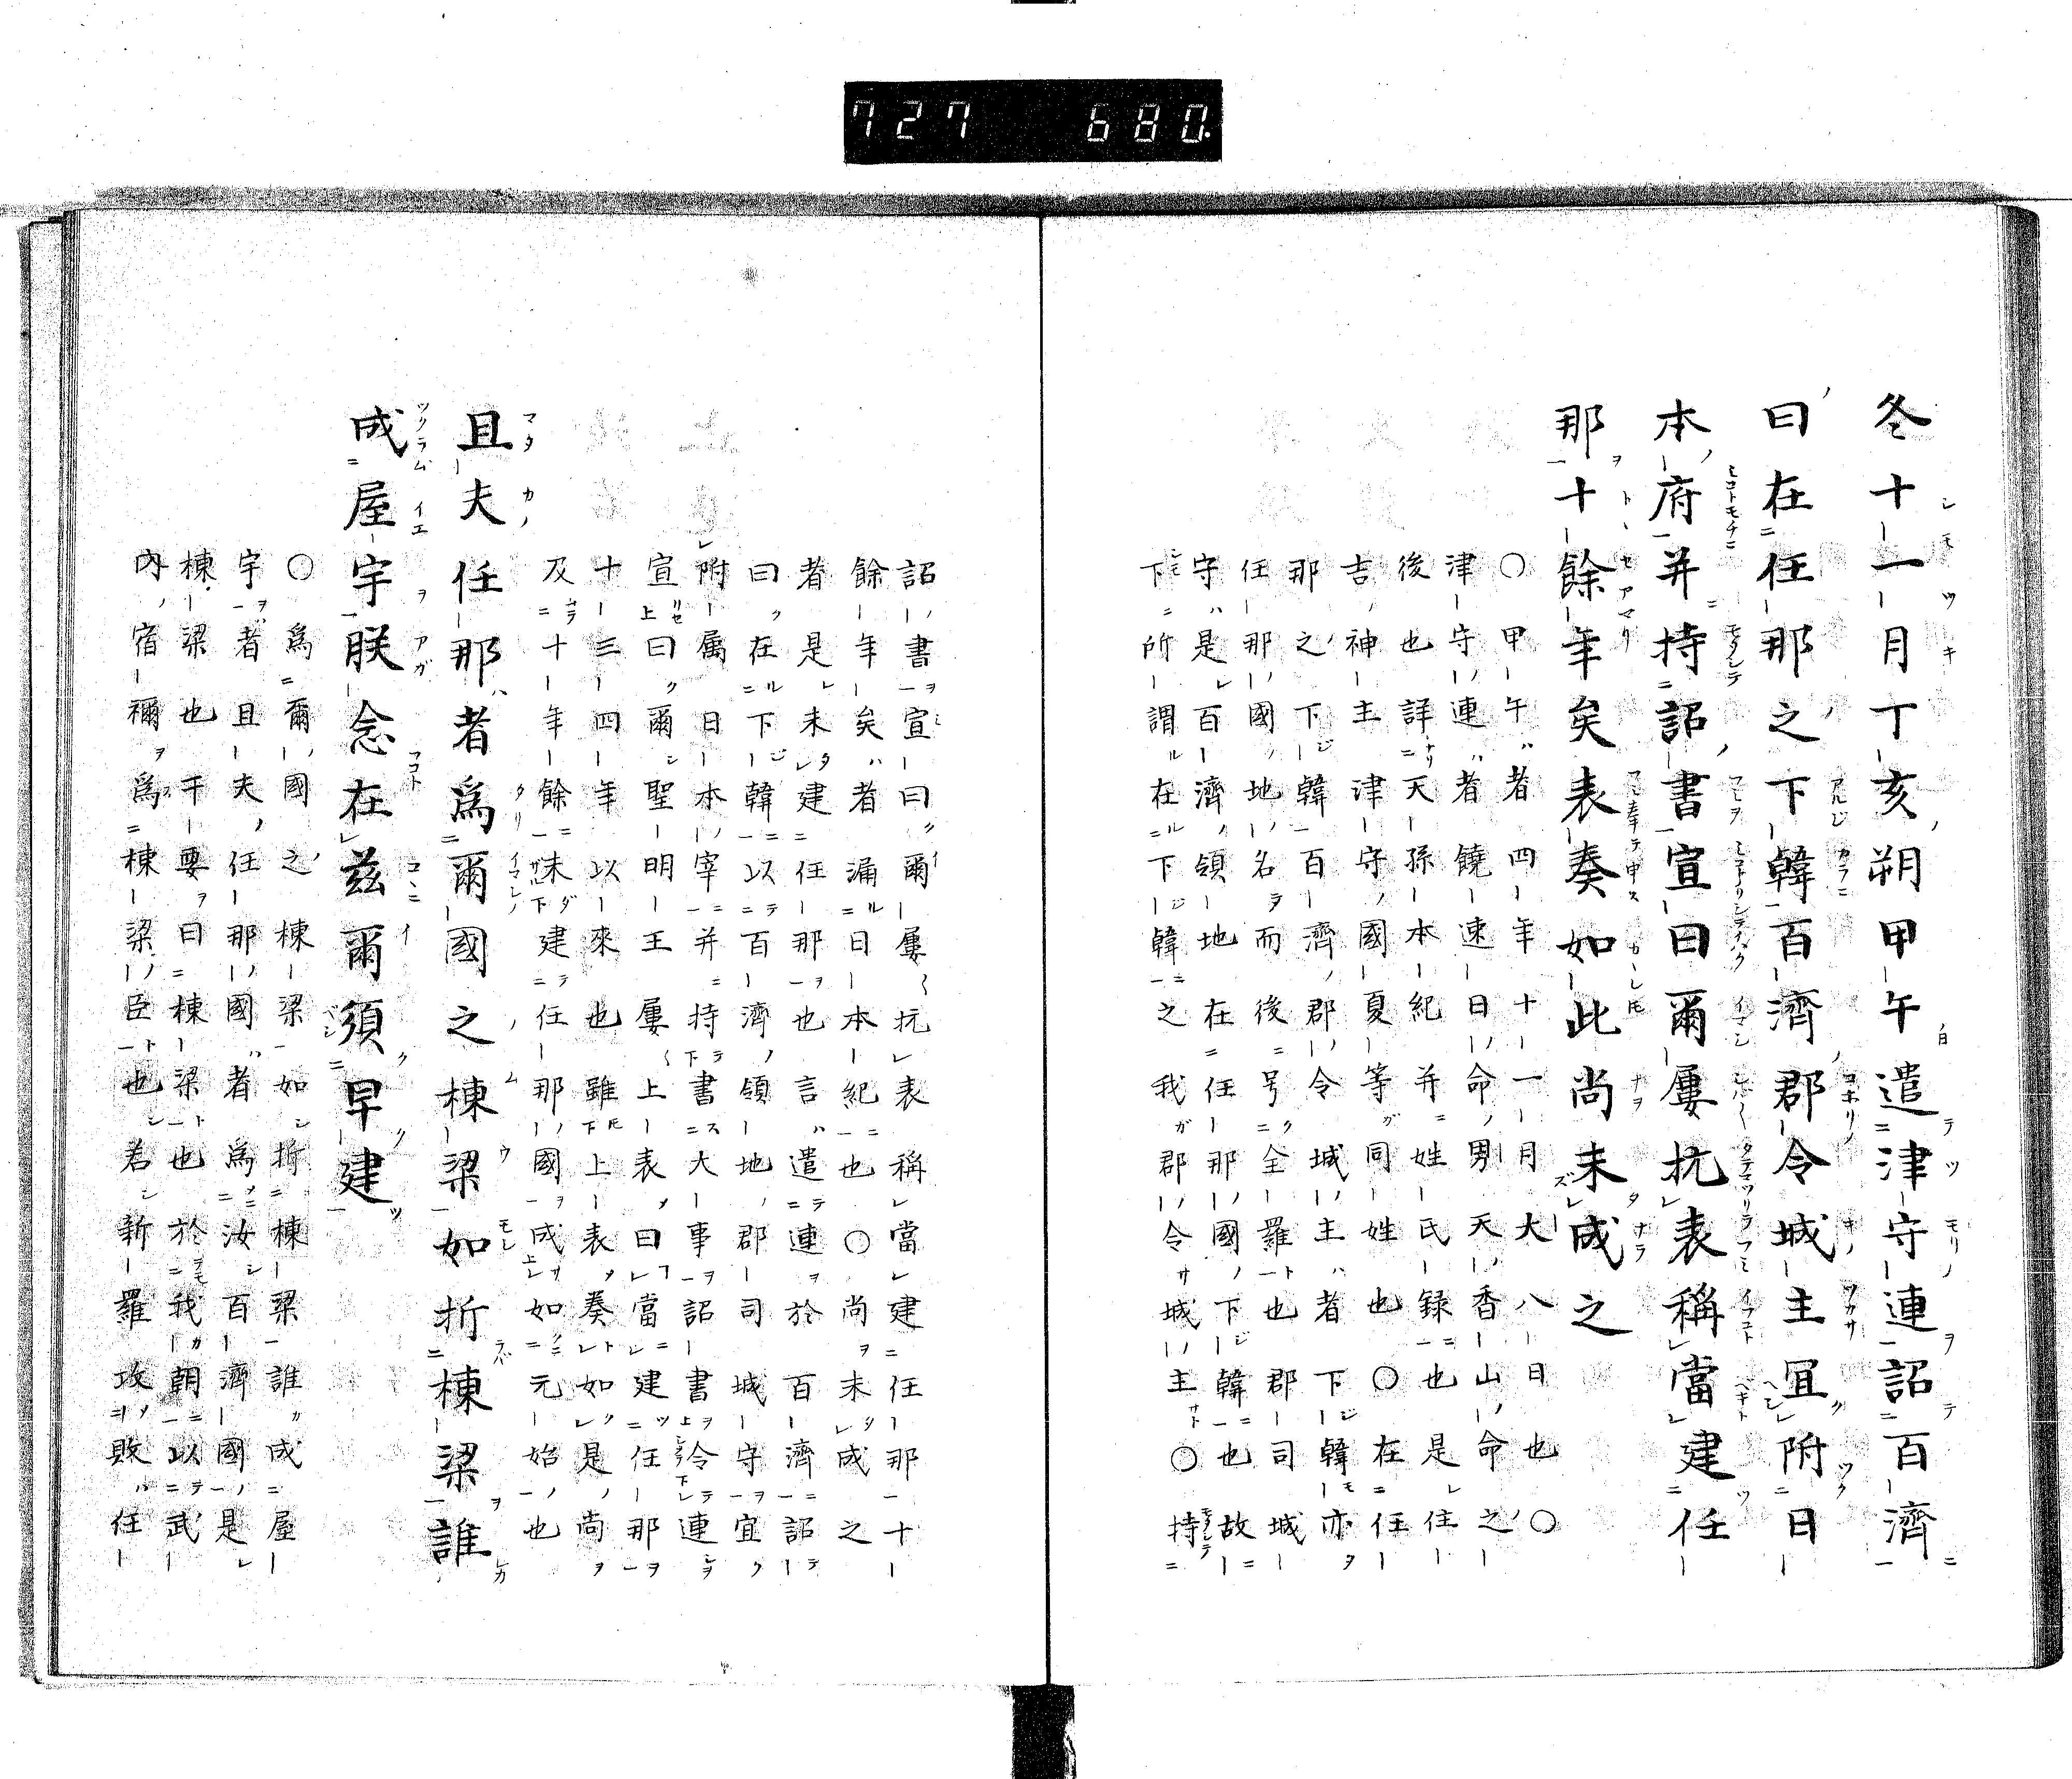 727 680.
冬十一月丁亥朔甲午遣津守連詔百濟
曰在任那之下韓百濟郡令城主冝附日
本府并持詔書宣曰爾屢抗表稱當建任
那十餘年矣表奏如此尚未成之
〇甲午者四年十一月大八日也〇
津守連者饒速日命男天香山命之
後也詳天孫本紀并姓氏録也是住
吉神主津守國夏等同姓也〇在任
那之下韓百濟郡令城主者下韓亦
任那國地名而後号全羅也郡司城
守是百濟領地在任那國下韓也故
下所謂在下韓之我郡令城主〇持
詔書宣曰爾屢抗表稱當建任那十
餘年矣者漏日本紀也〇尚未成之
者是未建任那也言遣連於百濟詔
曰在下韓以百濟領地郡司城守宜
附属日本宰并持書大事詔書令連
宣曰爾聖明王屢上表曰當建任那
十三四年以來也雖上表奏如是尚
及十年餘未建任那國成如元始也
且夫任那者爲爾國之棟梁如折棟梁誰
成屋宇朕念在茲爾須早建
〇爲爾國之棟梁如折棟梁誰成屋
宇者且夫任那國者爲汝百濟國是
棟梁也干要曰棟梁也於我朝以武
內宿禰爲棟梁臣也若新羅攻敗任